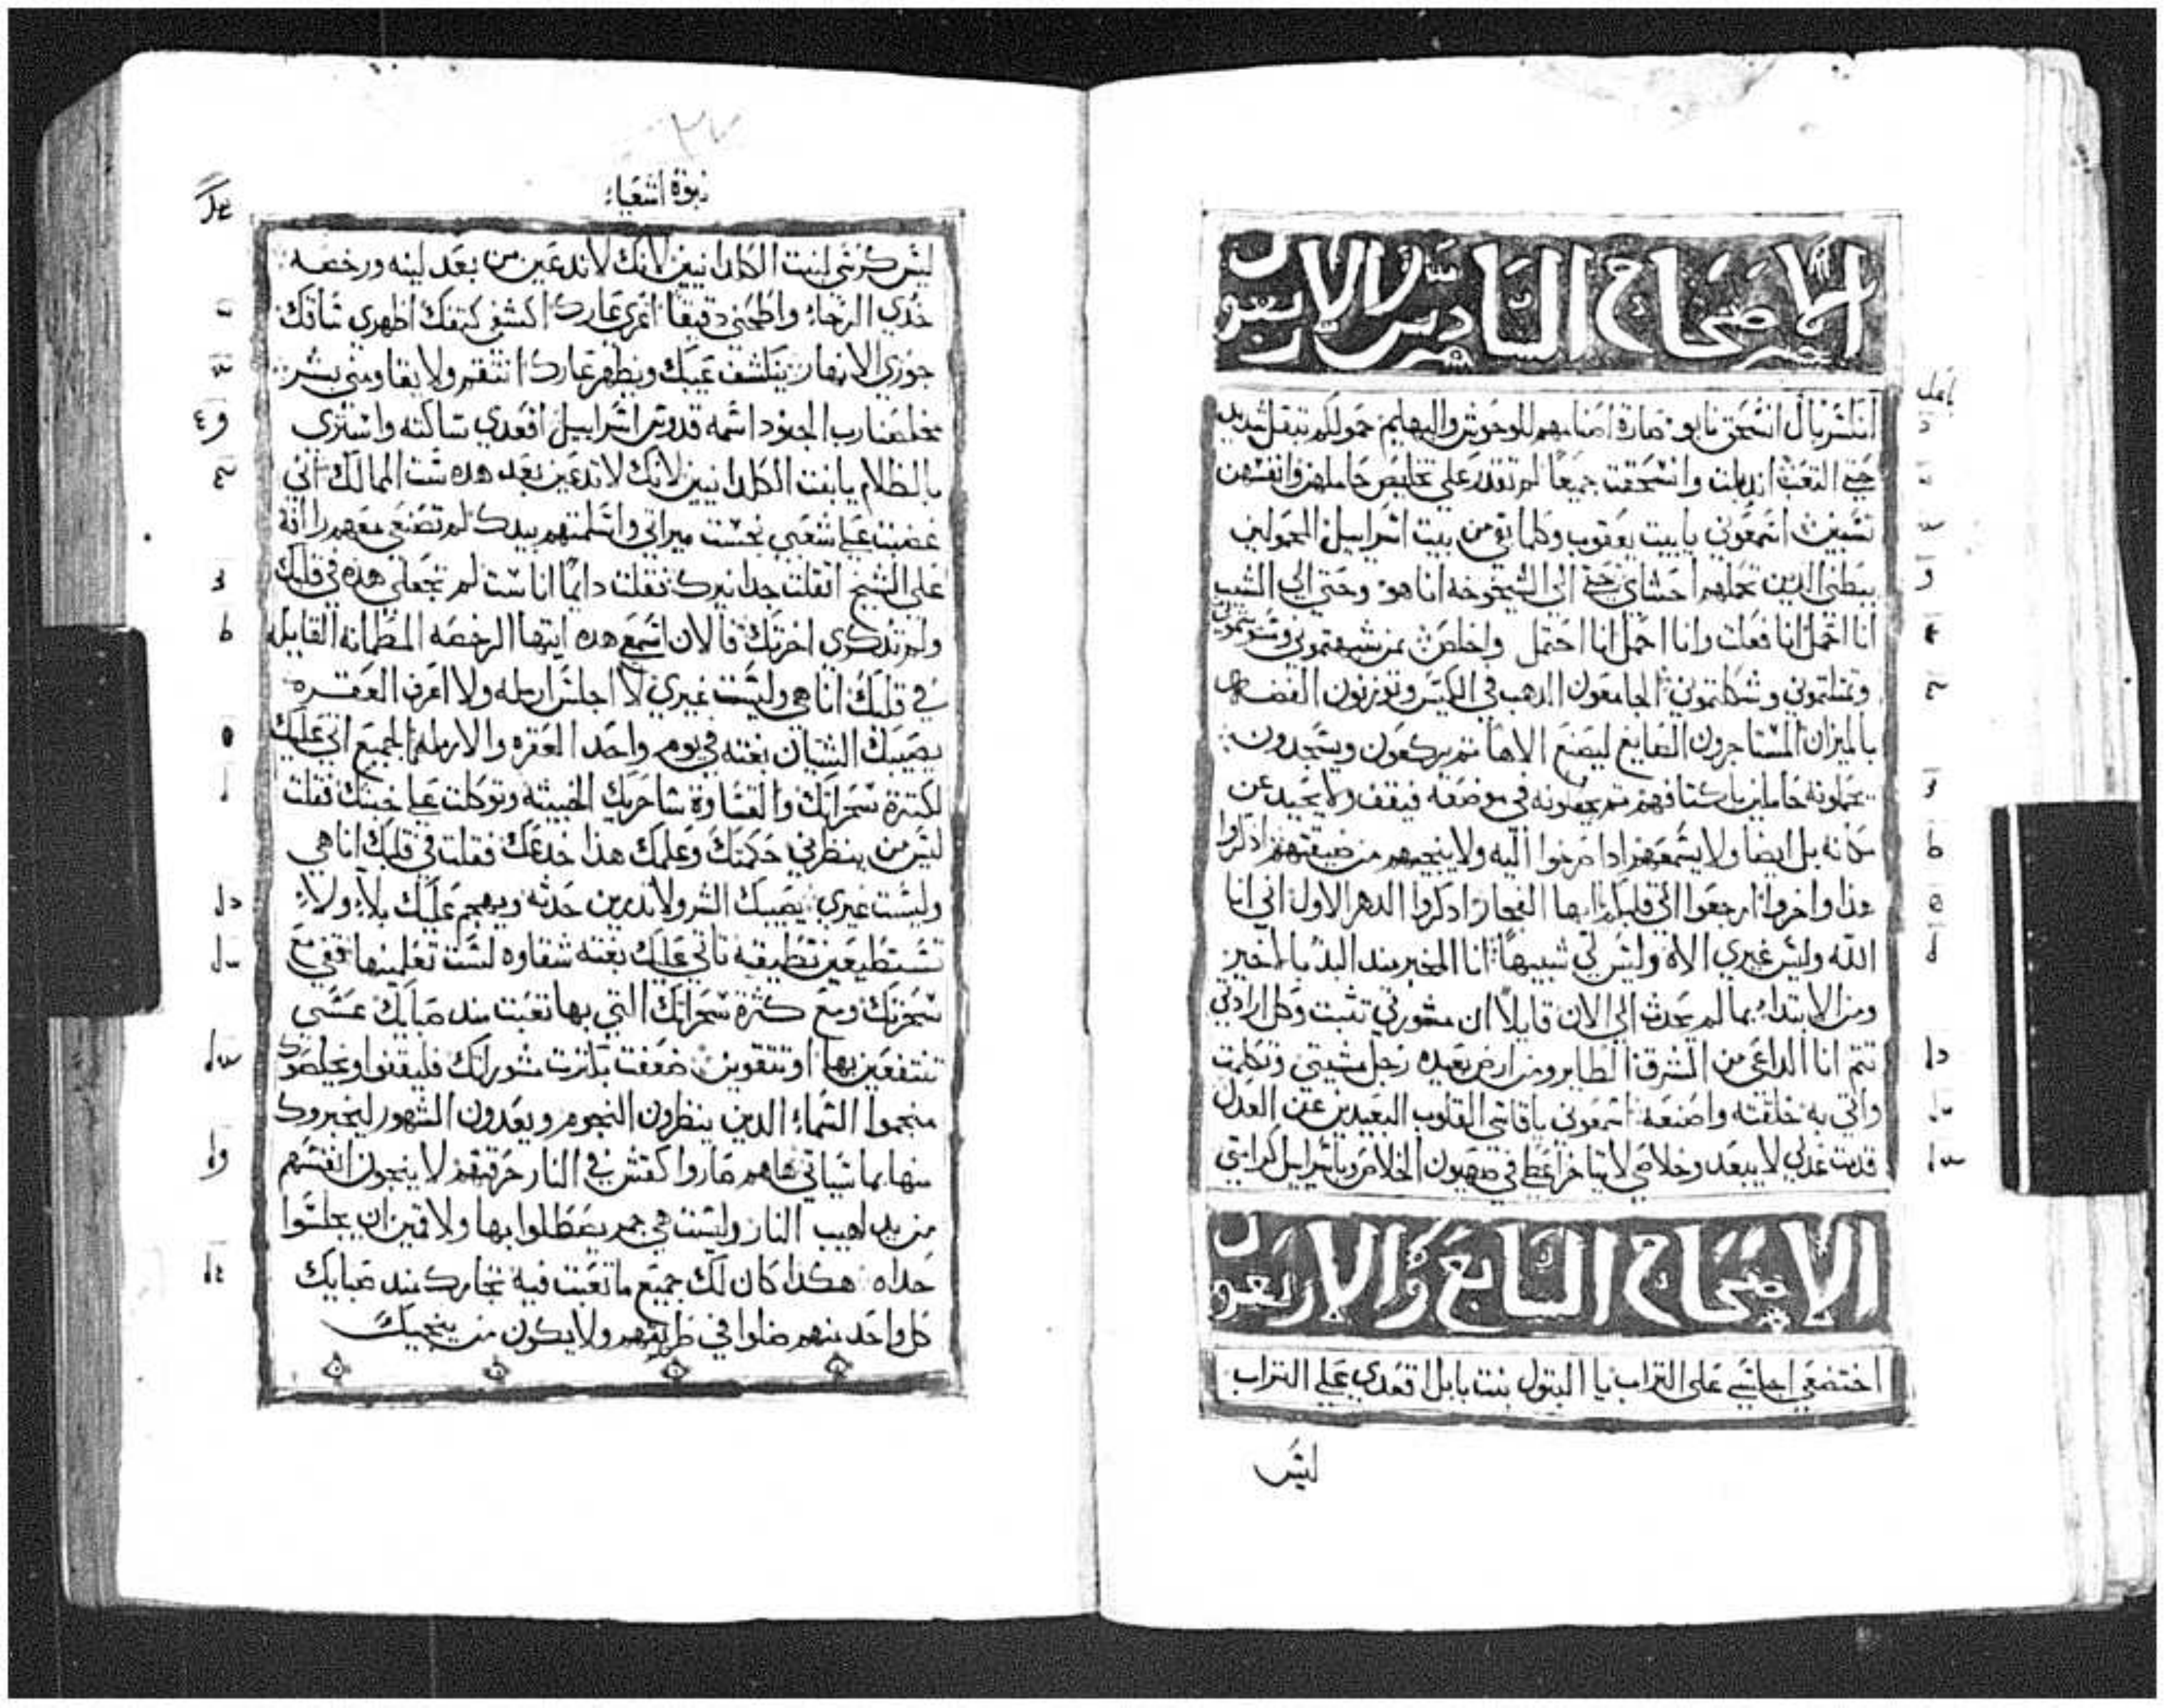 الاصحاح السادس والاربعون
انكسر بال انسحق نابو صارة اصنامهم للوحوش والبهايم حمولكم تتقل شديد
حتي التعب اندملت وانسحقت جميعا لم تقدر علي تخليص حاملهن وانفسهن
تسبيت اسمعوني يا بيت يعقوب وكلما بقي من بيت اسراييل المحمولين
ببطني الدين تحملهم احشاي حتي الي الشيخوخه انا هو وحتي الي الشيب
انا احمل انا فعلت وانا احمل انا احتمل واخلص بمن شبهتموني وسويتموني
وتمتلتموني وشكلتموني الجامعون الدهب في الكيس وتوزنون الفضه
بالميزان المستاجرون الصايغ ليصنع الاها تم يركعون ويسجدون
يحملونه حاملين باكتافهم تم يجعلونه في موضعه فيقف ولا يحيد عن
مكانه بل ايضا ولا يسمعهم ادا صرخوا اليه ولا ينجيهم من ضيقتهم ادكروا
هدا واخزوا ارجعوا الي قلبكم ايها الفجار ادكروا الدهر الاول اني انا
الله وليس غيري الاه وليس لي شبيها انا المخبر مند البد بالاخير
ومن الابتداء بما لم يحدث الي الان قايلا ان مشورتي تتبت وكل ارادتي
تتم انا الداعي من المشرق الطاير ومن ارض بعيده رجل مشيتي وتكلمت
واتي به خلقته واصنعه اسمعوني يا قاسي القلوب البعيدين عن العدل
قربت عدلي لا يبعد وخلاصي لا يتاخر اعطي في صهيون الخلاص وباسراييل كرامتي
الاصحاح السابع والاربعون
اختضعي اجلسي علي التراب يا البتول بنت بابل اقعدي علي التراب
ليس
نبوة اشعياء
ليس كرسي لبنت الكلدانيين لانك لا تدعين من بعد لينه ورخصه
خدي الرحاء واطحني دقيقا اعري عارك اكشفي كتفك اظهري ساقك
جوزي الانهار ينكشف عيبك ويظهر عارك انتقم ولا يقاومني بشر
مخلصنا رب الجنود اسمه قدوس اسراييل اقعدي ساكته واستتري
بالظلام يا بنت الكلدانيين لانك لا تدعين بعد هده ست الممالك اني
غضبت علي شعبي نجست ميراتي واسلمتهم بيدك لم تصنعي معهم رافة
علي الشيخ اتقلت جدا نيرك فقلت دايما انا ست لم تجعلي هده في قلبك
ولم تدكري اخرتك فالان اسمعي هده ايتها الرخصه المطمانه القايله
في قلبك انا هي وليست غيري لا اجلس ارمله ولا اعرف العقره
يصيبك الشيان بغته في يوم واحد العقره والارمله الجميع اتي عليك
لكترة سحراتك والقساوة ساحريك الخبيته وتوكلت علي خبتك فقلت
ليس من ينظرني حكمتك وعلمك هدا خدعك فقلت في قلبك انا هي
وليست غيري يصيبك الشر ولا تدرين حدته ويهجم عليك بلاء ولاء
تستطيعين تطيقه تاتي عليك بغته شقاوه لست تعلمينها قفي مع
سحرتك ومع كترة سحراتك التي بها تعبت مند صبايك عسي
تنتفعين بها او تتقوين ضعفت بكترت مشوراتك فليقفوا ويخلصوك
منجموا السماء الدين ينظرون النجوم ويعدون الشهور ليخبروك
منها بما سياتي هاهم صاروا كقش في النار حرقتهم لا ينجون انفسهم
من يد لهيب النار وليست هي جمر يصطلوا بها ولا قمين ان يجلسوا
حداه هكدا كان لك جميع ما تعبت فيه تجارك مند صبايك
كل واحد منهم ضلوا في طريقهم ولا يكون من ينجيك